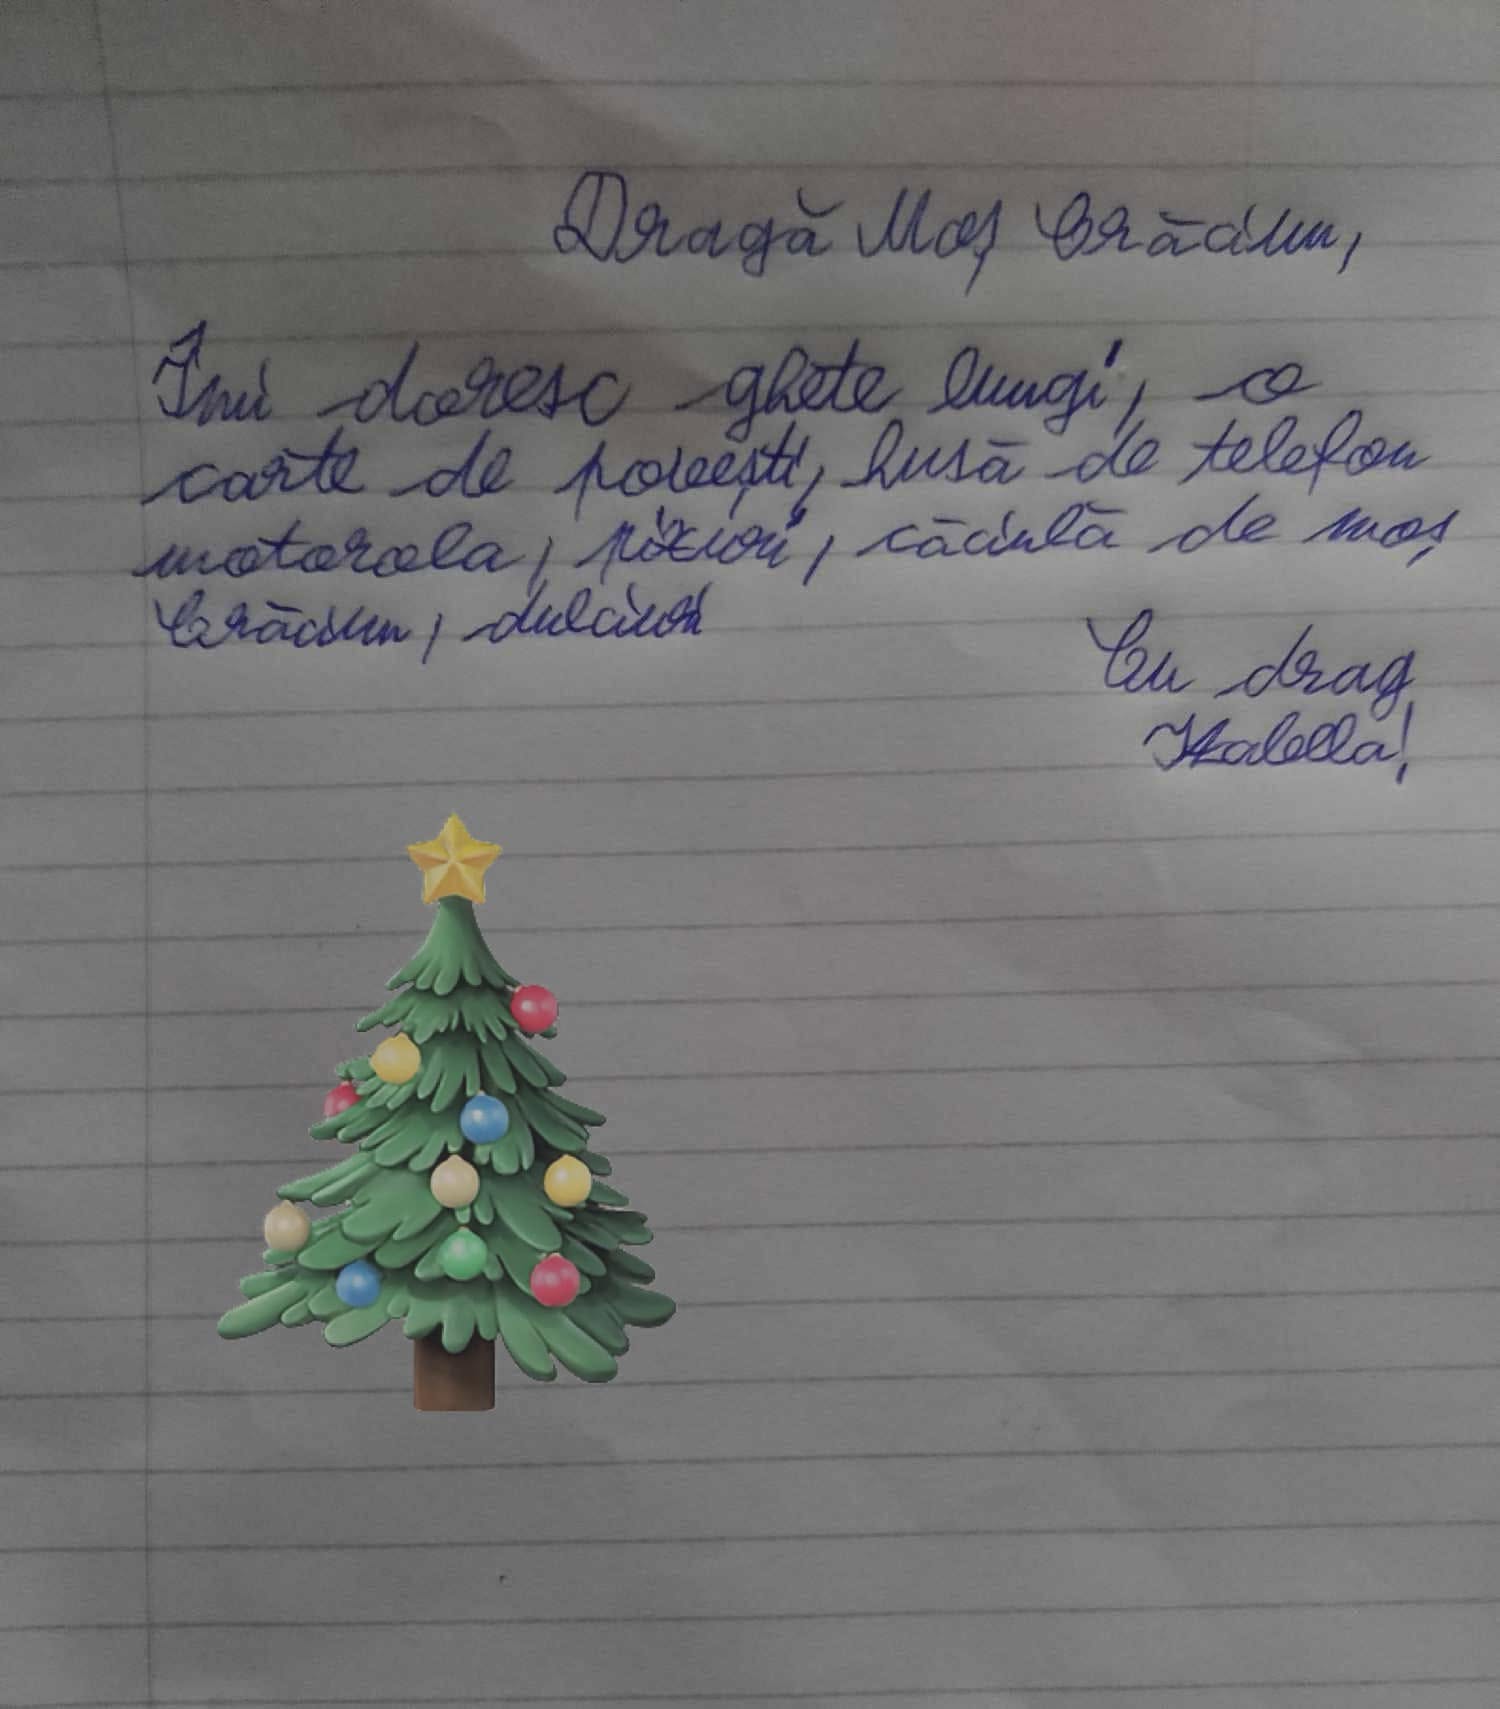 Dragă Moș Crăciun,
Îmi doresc ghete lungi, o
carte de povești, husă de telefon
motorola, pixuri, căciulă de moș
Crăciun, dulciuri
Cu drag
Izabella!